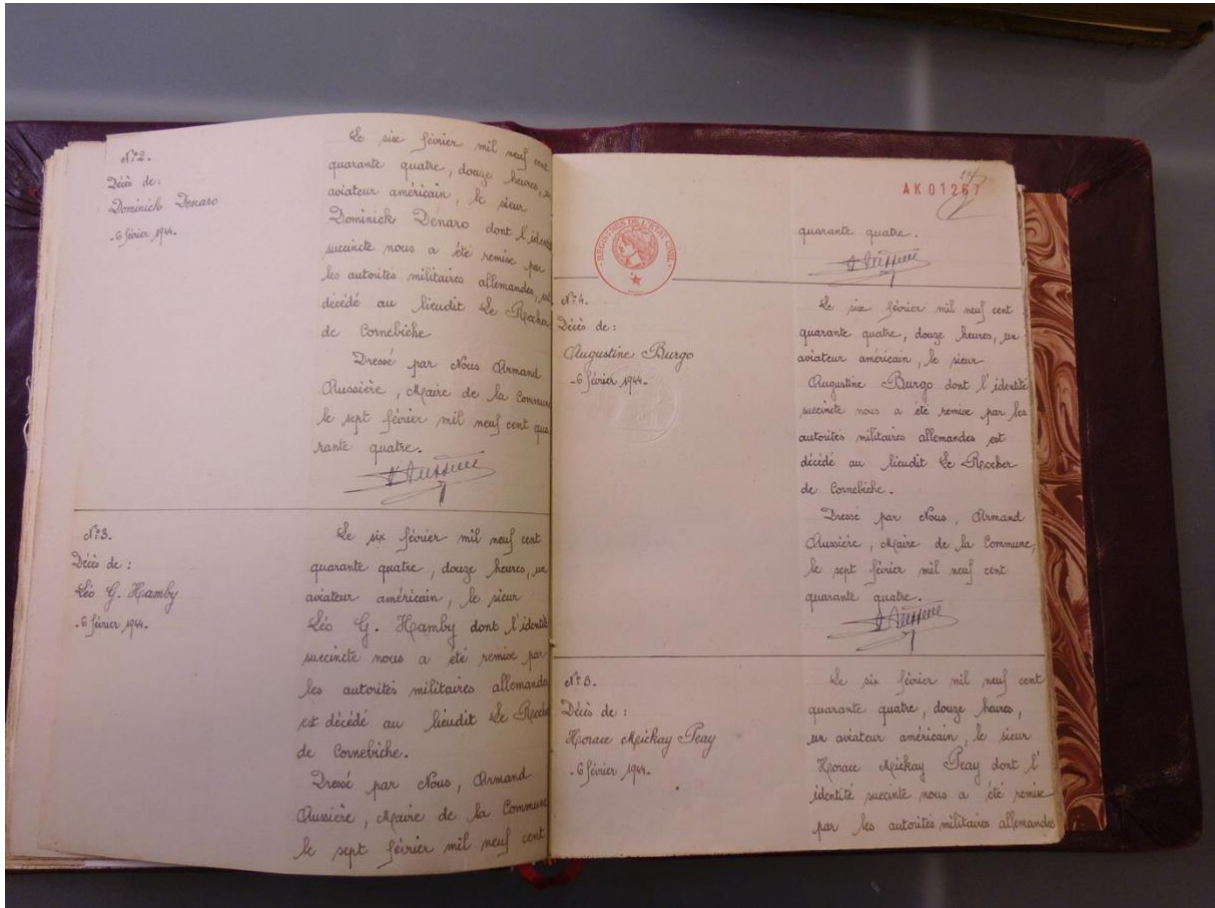 N° 2.
Décès de :
Dominick Denaro
- 6 février 1944 -
Le six février mil neuf cent
quarante quatre, douze heures, un
aviateur américain, le sieur
Dominick Dénaro dont l'identité
succincte nous a été remise par
les autorités militaires allemandes, est
décédé au lieudit Le Rocher
de Cornebiche
Dressé par Nous Armand
Aussière, Maire de la Commune
le sept février mil neuf cent qua
rante quatre.
N° 3.
Décès de :
Léo G. Hamby
- 6 février 1944 -
Le six février mil neuf cent
quarante quatre, douze heures, un
aviateur américain, le sieur
Léo G. Hamby dont l'identité
succincte nous a été remise par
les autorités militaires allemandes
est décédé au lieudit Le Rocher
de Cornebiche.
Dressé par Nous, Armand
Aussière, Maire de la Commune
le sept février mil neuf cent
AK 01267
REGISTRES DE L'ETAT CIVIL
quarante quatre.
N° 4.
Décès de :
Augustine Burgo
- 6 février 1944 -
Le six février mil neuf cent
quarante quatre, douze heures, un
aviateur américain, le sieur
Augustine Burgo dont l'identité
succincte nous a été remise par les
autorités militaires allemandes est
décédé au lieudit Le Rocher
de Cornebiche.
Dressé par Nous, Armand
Aussière, Maire de la Commune,
le sept février mil neuf cent
quarante quatre.
N° 5.
Décès de :
Horace Mickay Peay
- 6 février 1944 -
Le six février mil neuf cent
quarante quatre, douze heures,
un aviateur américain, le sieur
Horace Mickay Peay dont l'
identité succinte nous a été remise
par les autorités militaires allemandes